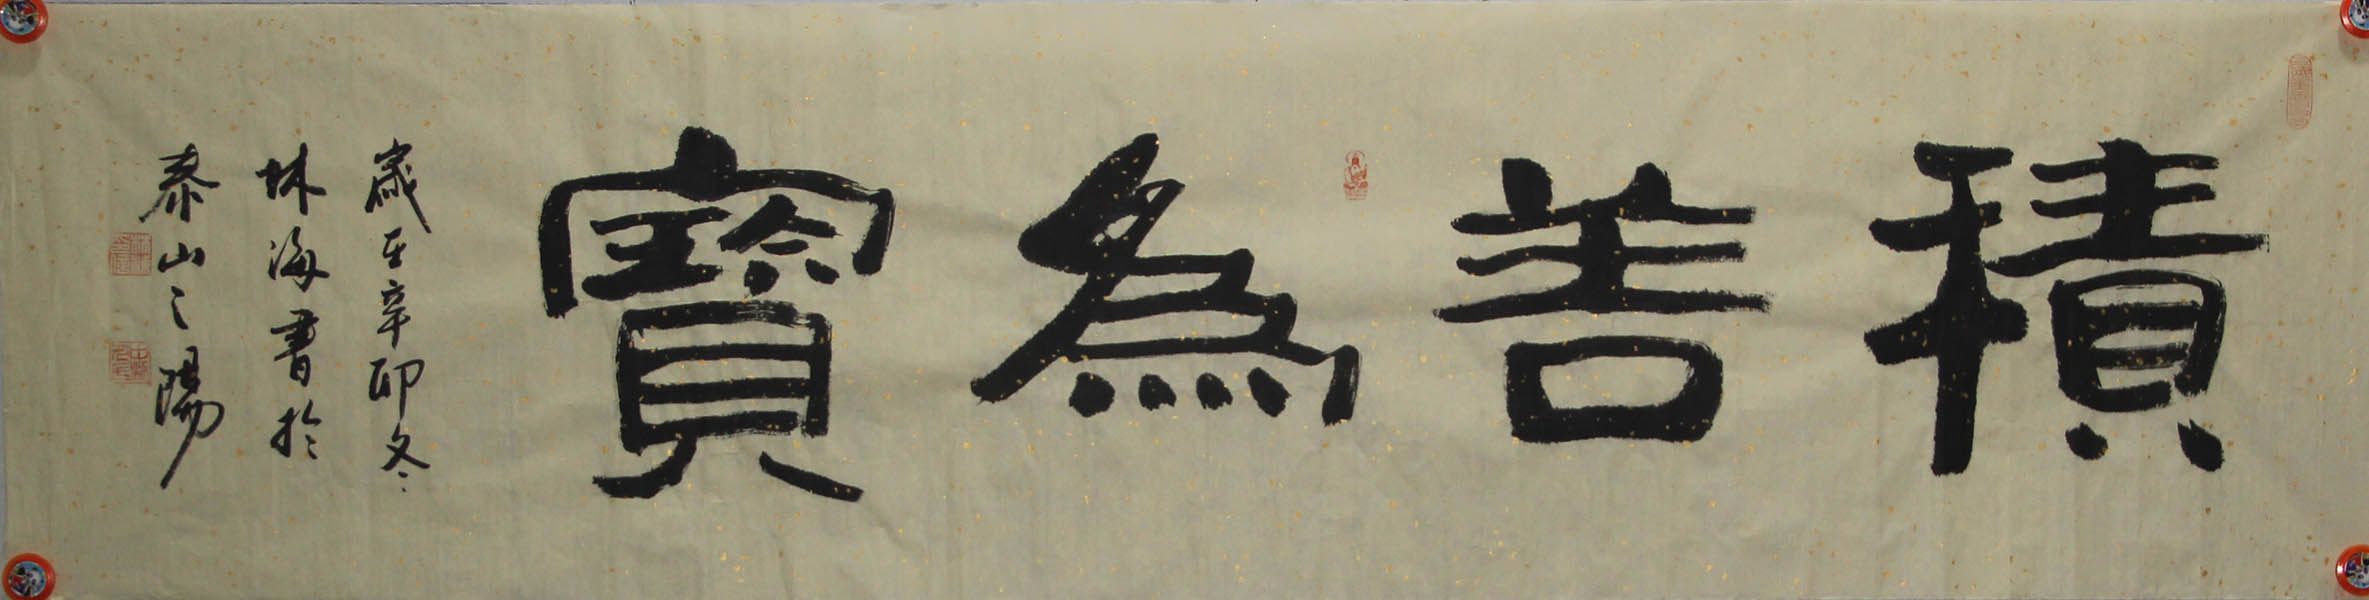 積善為寶
歲在辛卯冬
林海書於
泰山之陽